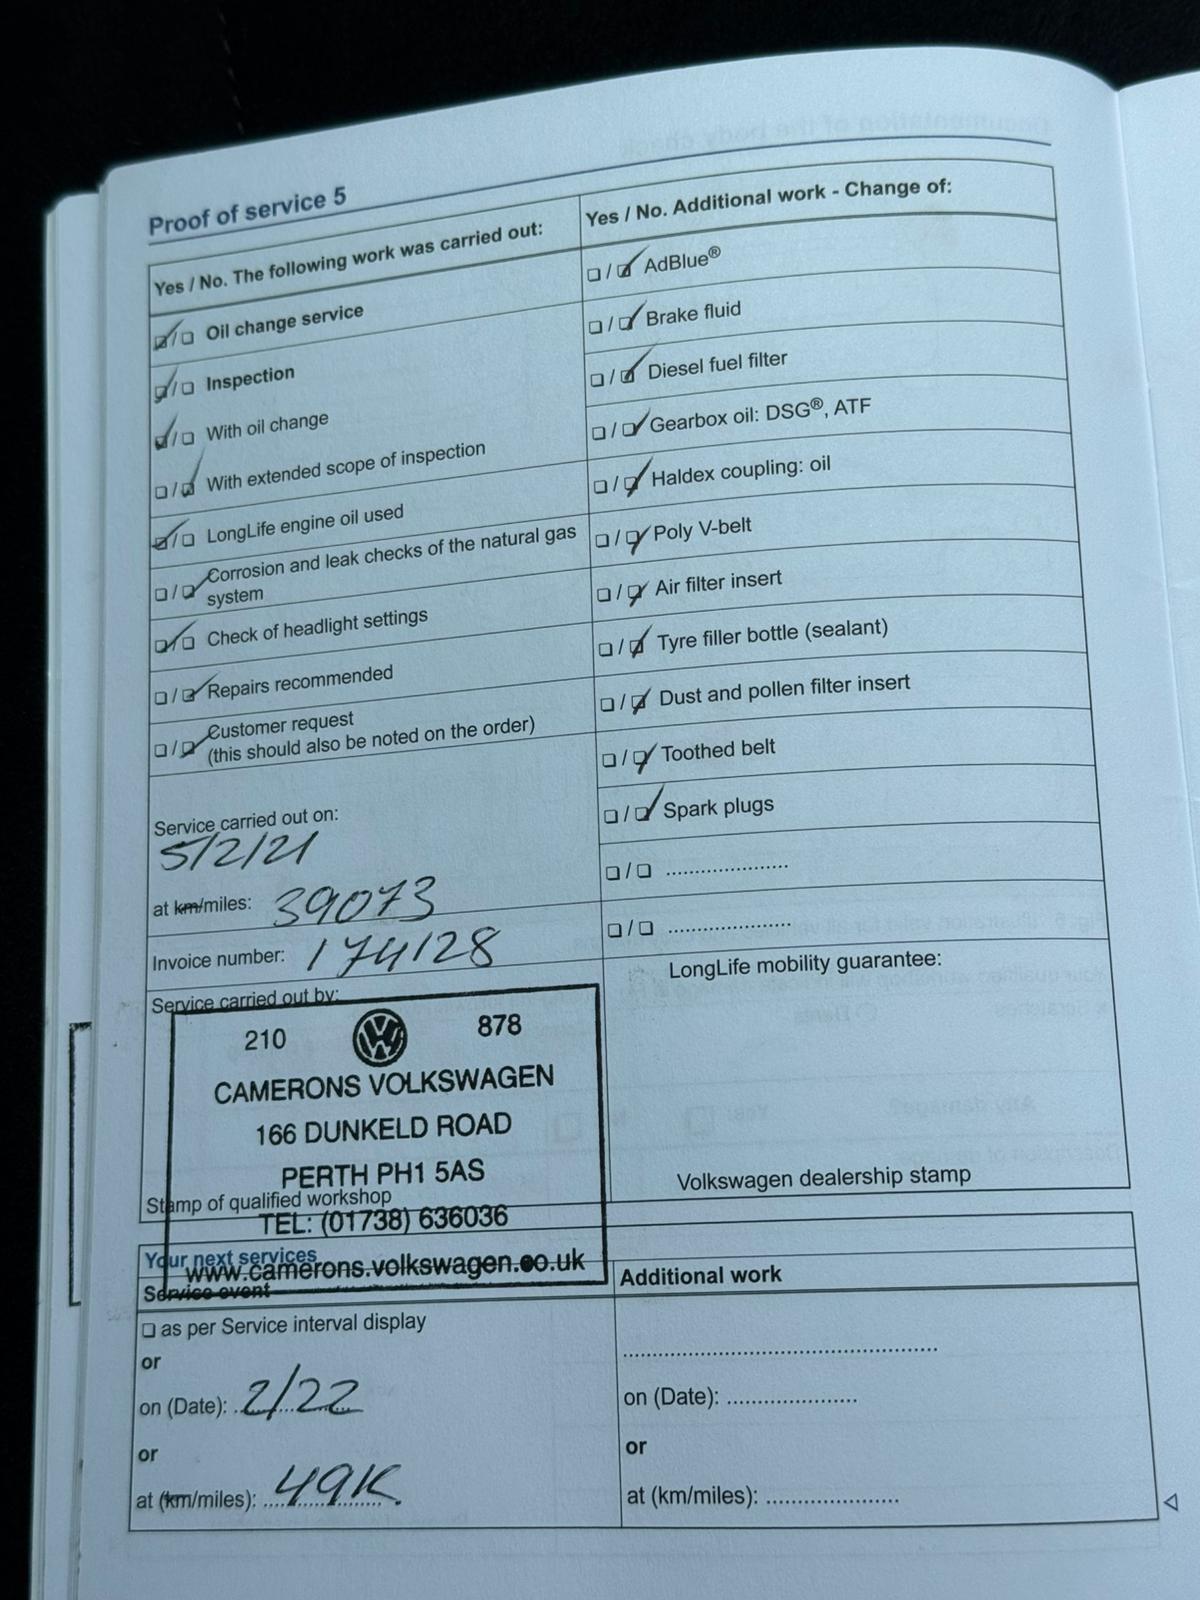 Proof of service 5
Yes / No. The following work was carried out:
☑/☐ Oil change service
☑/☐ Inspection
☑/☐ With oil change
☐/☑ With extended scope of inspection
☑/☐ LongLife engine oil used
☐/☑ Corrosion and leak checks of the natural gas
system
☑/☐ Check of headlight settings
☐/☑ Repairs recommended
☐/☑ Customer request
(this should also be noted on the order)
Service carried out on:
5/2/21
at km/miles: 39073
Invoice number: 174128
Service carried out by:
210 878
CAMERONS VOLKSWAGEN
166 DUNKELD ROAD
PERTH PH1 5AS
Stamp of qualified workshop
TEL: (01738) 636036
www.camerons.volkswagen.co.uk
Yes / No. Additional work - Change of:
☐/☑ AdBlue®
☐/☑ Brake fluid
☐/☑ Diesel fuel filter
☐/☑ Gearbox oil: DSG®, ATF
☐/☑ Haldex coupling: oil
☐/☑ Poly V-belt
☐/☑ Air filter insert
☐/☑ Tyre filler bottle (sealant)
☐/☑ Dust and pollen filter insert
☐/☑ Toothed belt
☐/☑ Spark plugs
☐/☐ ....................
☐/☐ ....................
LongLife mobility guarantee:
Volkswagen dealership stamp
Your next services
Service event
☐ as per Service interval display
or
on (Date): 2/22
or
at (km/miles): 49K.
Additional work
..................................................
on (Date): ....................
or
at (km/miles): ....................